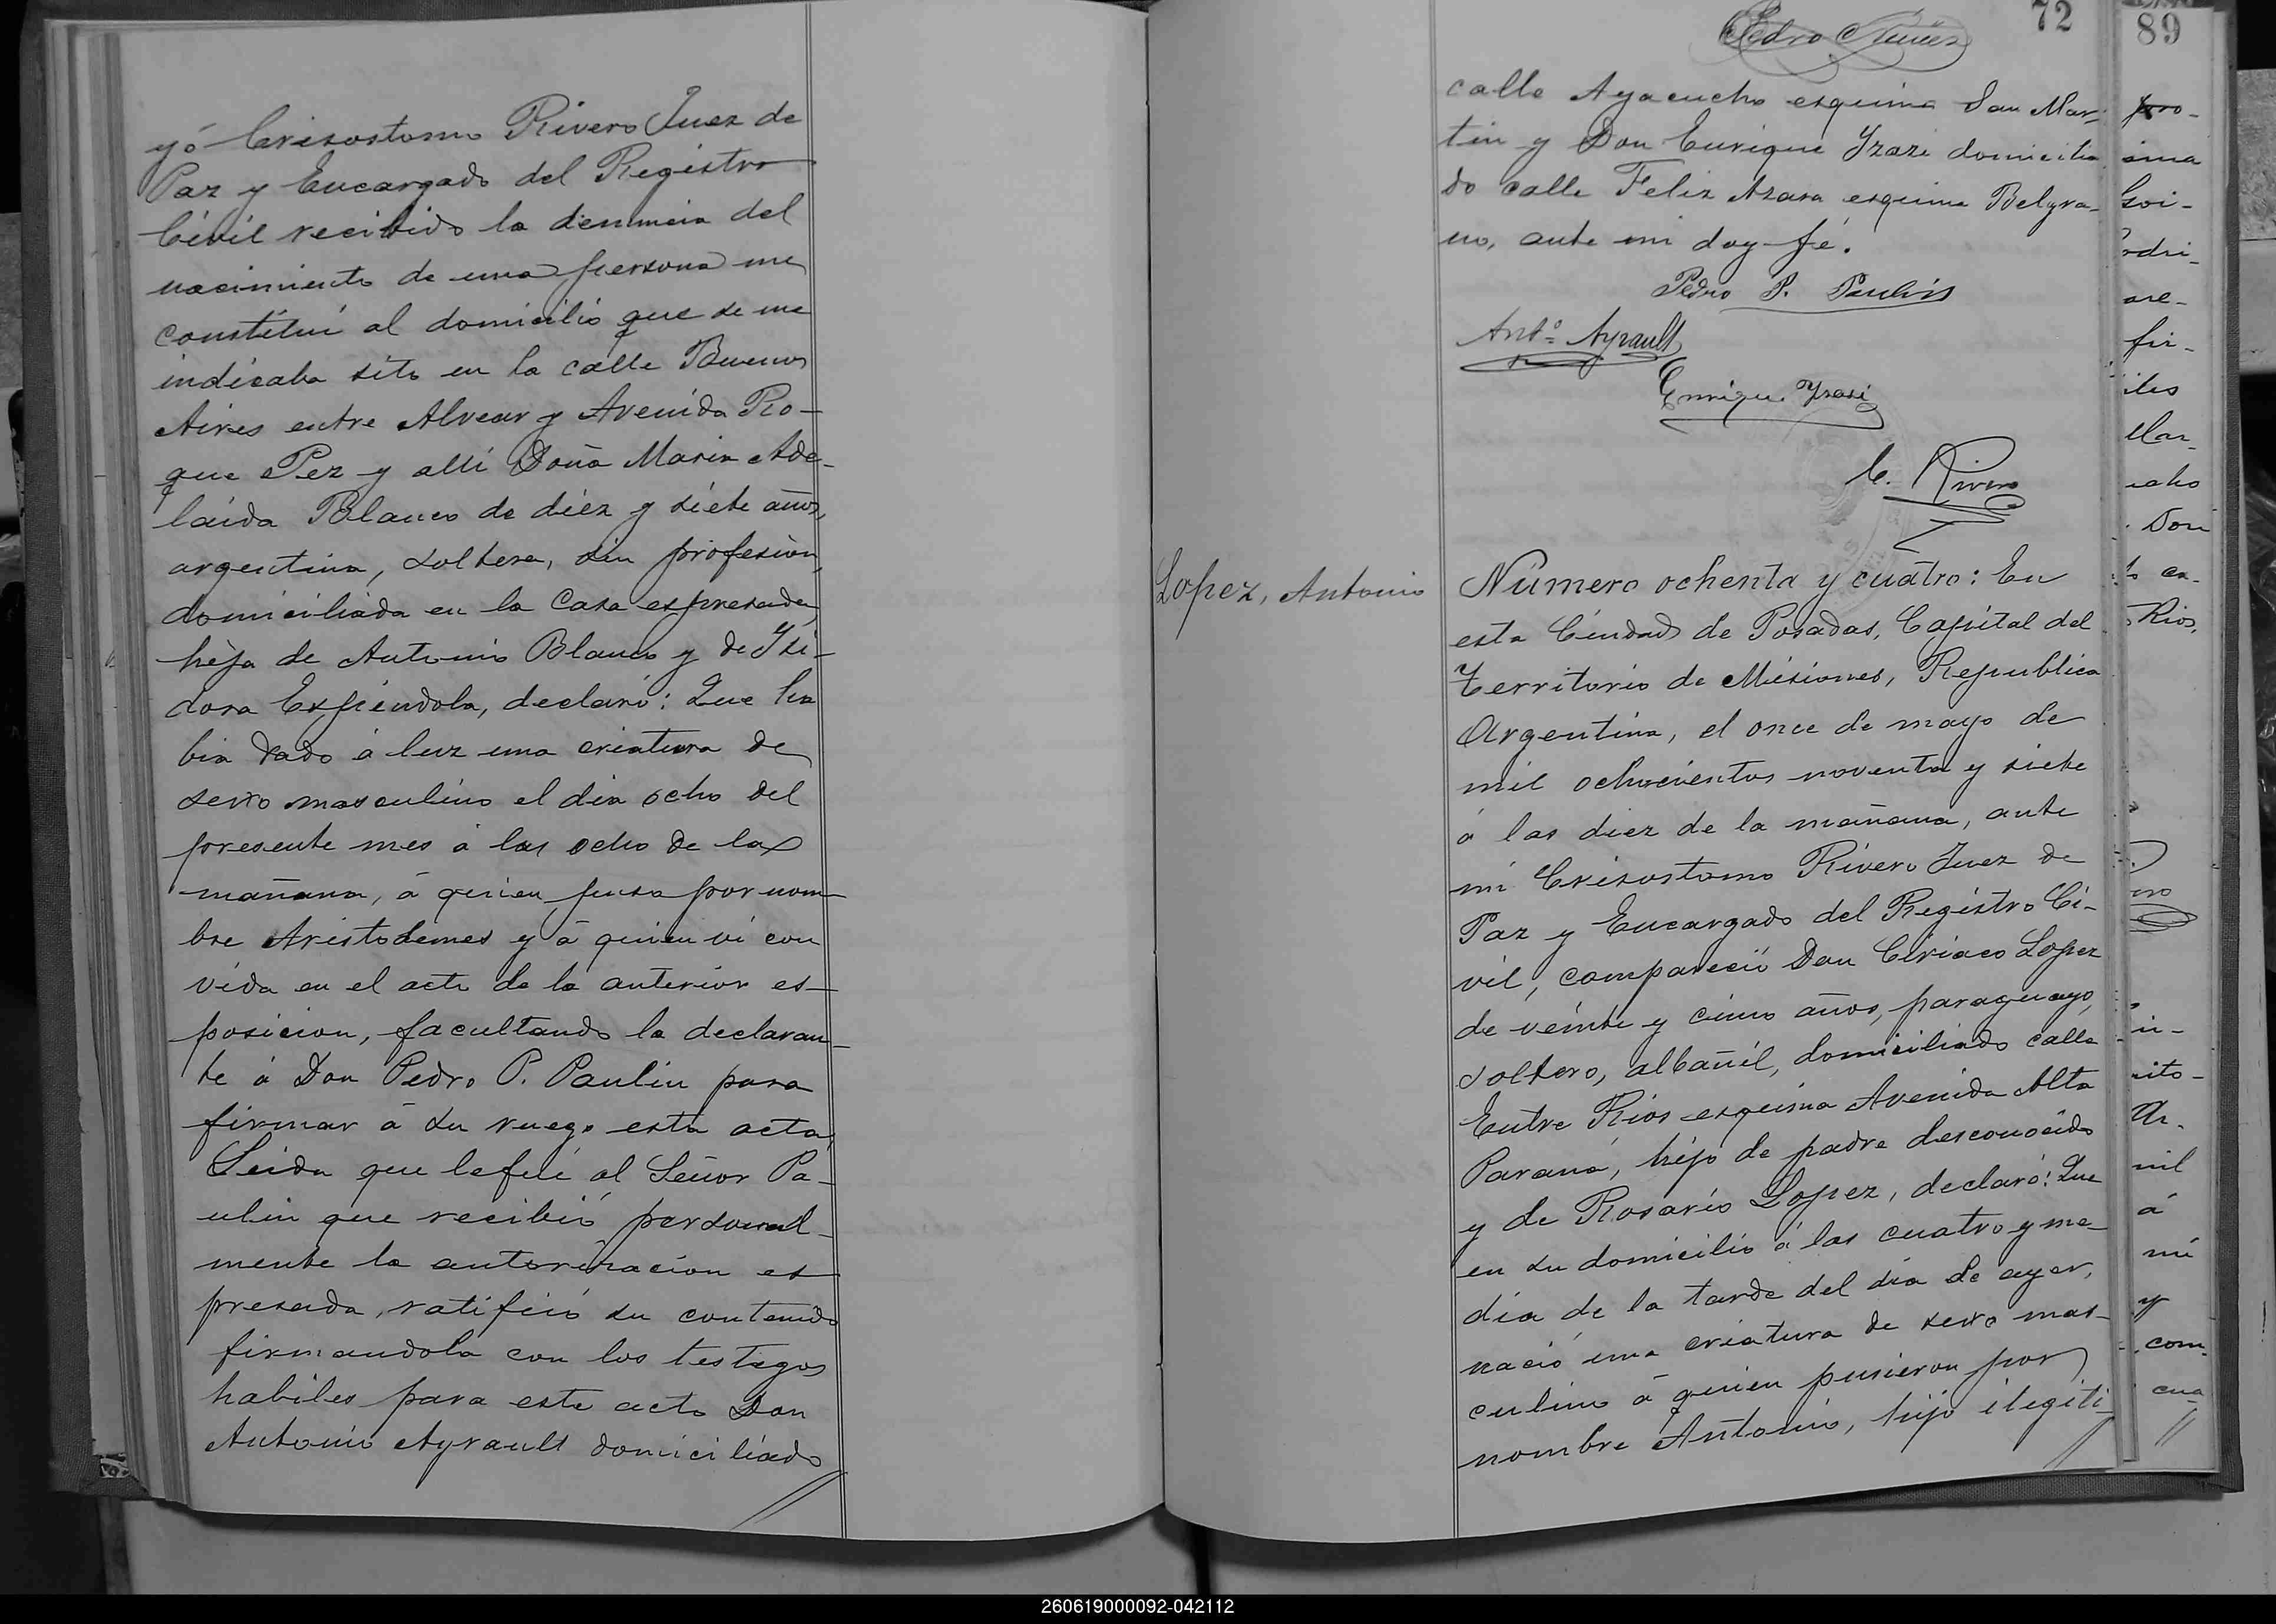 yó Crisostomo Rivero Juez de
Paz y Encargado del Registro
Civil recibido la denuncia del
nacimiento de una persona me
constitui al domicilio que se me
indicaba sito en la calle Buenos
Aires entre Alvear y Avenida Ro-
que Pez y alli Doña Maria Ade-
laida Blanco de diéz y siéte años,
argentina, soltera, sin profesion,
domiciliada en la casa espresada,
hija de Antonio Blanco y de Ysi-
dora Espíndola, declaró: Que ha
bia dado á luz una criatura de
sexo masculino el dia ocho del
presente mes á las ocho de la
mañana, á quien puso por nom-
bre Aristodemes y á quien vi con
vida en el acto de la anterior es-
posicion, facultando la declaran-
te á Don Pedro P. Paulin para
firmar á su ruego esta acta
Leida que le fué al Señor Pa-
ulin que recibió personal-
mente la autorizacion es
presada, ratificó su contenido
firmandola con los testigos
habiles para este acto Don
Antonio Ayrault domiciliado
72
calle Ayacucho esquina San Mar-
tin y Don Enrique Yzazi domicilia
do calle Feliz Azara esquina Belgra-
no, ante mi doy fé.
Pedro P. Paulin
Antº Ayrault
Enrique Yzasi
C. Rivero
Lopez, Antonio
Número ochenta y cuatro: En
esta Ciudad de Posadas, Capital del
Territorio de Misiones, Republica
Argentina, el once de mayo de
mil ochocientos noventa y siete
á las diez de la mañana, ante
mi Crisostomo Rivero Juez de
Paz y Encargado del Registro Ci-
vil, compareció Don Ciriaco Lopez
de veinte y cinco años, paraguayo,
soltero, albañil, domiciliado calle
Entre Rios esquina Avenida Alta
Paraná, hijo de padre desconocido
y de Rosario Lopez, declaró: Que
en su domicilio á las cuatro y me-
dia de la tarde del dia de ayer,
nació una criatura de sexo mas-
culino á quien pusieron por
nombre Antonio, hijo ilegiti-
89
260619000092-042112